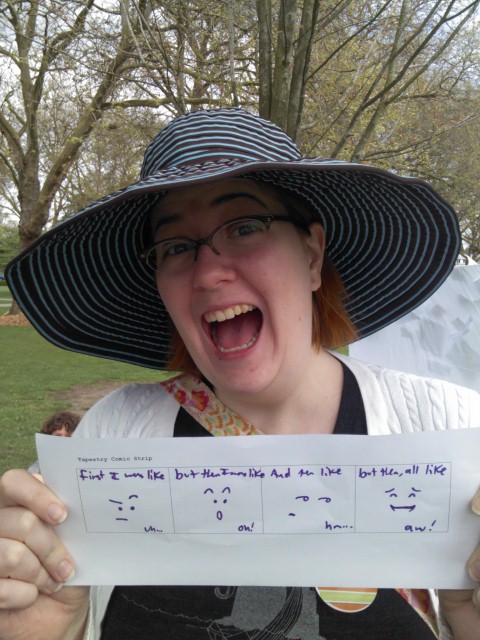 Tapestry Comic Strip
First I was like
but then I was like
And then like
but then, all like
uh..
oh!
hm...
aw!